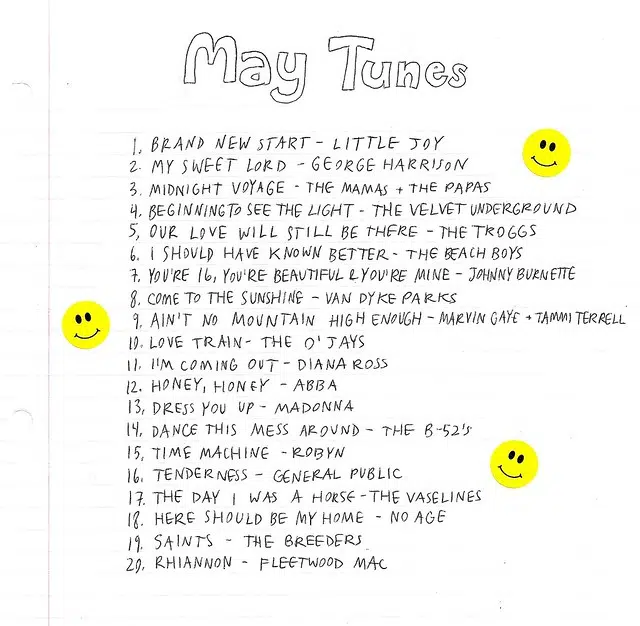 May Tunes
1. BRAND NEW START - LITTLE JOY
2. MY SWEET LORD - GEORGE HARRISON
3. MIDNIGHT VOYAGE - THE MAMAS + THE PAPAS
4. BEGINNING TO SEE THE LIGHT - THE VELVET UNDERGROUND
5, OUR LOVE WILL STILL BE THERE - THE TROGGS
6. I SHOULD HAVE KNOWN BETTER - THE BEACH BOYS
7. YOU'RE 16, YOU'RE BEAUTIFUL & YOU'RE MINE - JOHNNY BURNETTE
8. COME TO THE SUNSHINE - VAN DYKE PARKS
9. AIN'T NO MOUNTAIN HIGH ENOUGH - MARVIN GAYE + TAMMI TERRELL
10. LOVE TRAIN - THE O'JAYS
11. I'M COMING OUT - DIANA ROSS
12. HONEY, HONEY - ABBA
13, DRESS YOU UP - MADONNA
14, DANCE THIS MESS AROUND - THE B-52'S
15, TIME MACHINE - ROBYN
16. TENDERNESS - GENERAL PUBLIC
17. THE DAY I WAS A HORSE - THE VASELINES
18. HERE SHOULD BE MY HOME - NO AGE
19. SAINTS - THE BREEDERS
20. RHIANNON - FLEETWOOD MAC